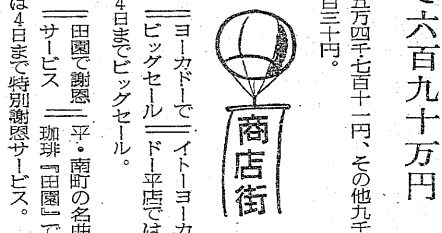 六百九十万円
五万四千七百十一円、その他九千
百三十円。
商店街
ヨーカドーで
ビッグセール
イトーヨーカ
ドー平店では
4日までビッグセール。
田園で謝恩
サービス
平・南町の名曲
珈琲『田園』で
は4日まで特別謝恩サービス。